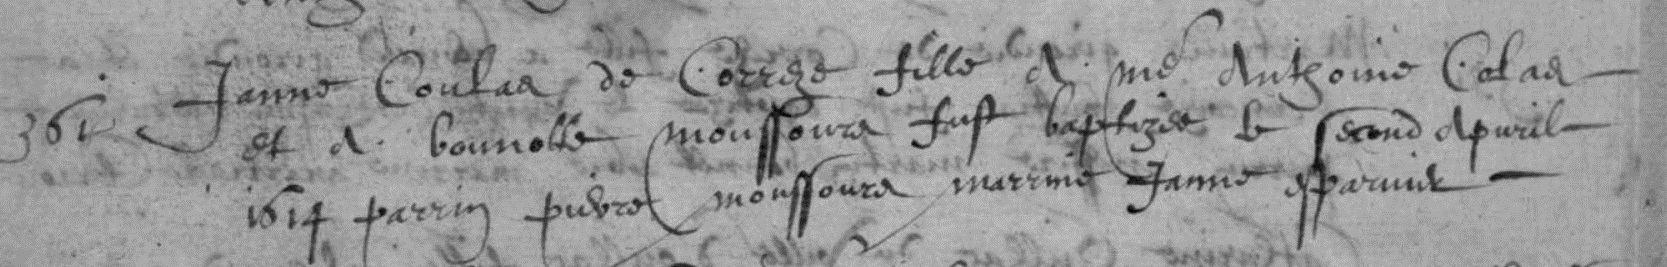 361 Janne Coulas de Correze fille d. me Anthoine Colas
et d. bonnelle moussours fust baptizée le second apuril
1614 parrin pierre moussours marrine Janne esparvier